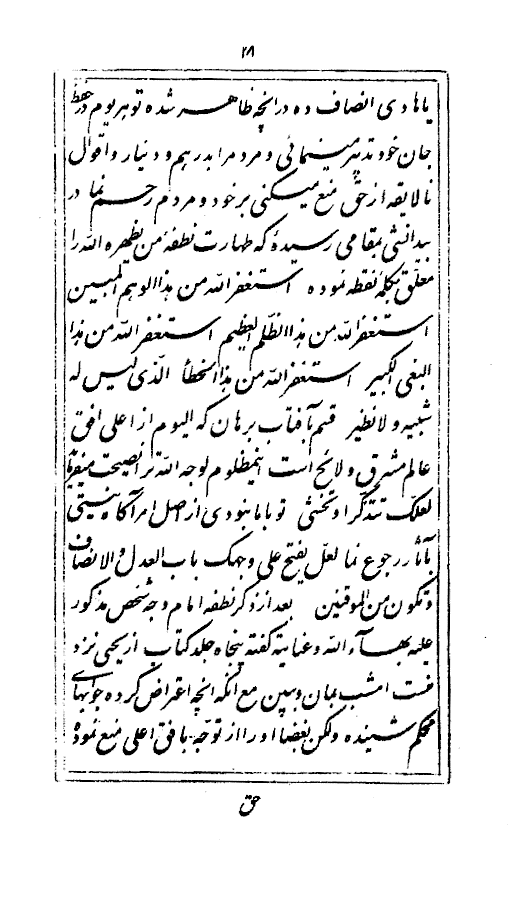 ۲۸
یا هادی انصاف ده در آنچه ظاهر شده تو هر یوم در حفظ
جان خود تدبیر مینمائی و مردم را بدرهم و دینار و اقوال
نالایقه از حقّ منع میکنی بر خود و مردم رحم نما در
بیدانشی بمقامی رسیدهٔ که طهارت نطفهٔ من یظهره اللّه را
معلّق بکلمهٔ نقطه نموده استغفر اللّه من هذا الوهم المبین
استغفر اللّه من هذا الظّلم العظیم استغفر اللّه من هذا
البغی الکبیر استغفر اللّه من هذا الخطأ الّذی لیس له
شبیه و لا نظیر قسم بآفتاب برهان که الیوم از اعلی افق
عالم مشرق و لائح است اینمظلوم لوجه اللّه ترا نصیحت میفرماید
لعلّک تتذکّر او تخشی تو با ما نبودی از اصل امر آگاه نیستی
بآثار رجوع نما لعلّ یفتح علی وجهک باب العدل و الانصاف
و تکون من الموقنین بعد از ذکر نطفه امام وجه شخص مذکور
علیه بهآء اللّه و عنایته گفته پنجاه جلد کتاب از یحیی نزد
منست امشب بمان و ببین مع آنکه آنچه اعتراض کرده جوابهای
محکم شنیده ولکن بغضا او را از توجّه بافق اعلی منع نموده
حق